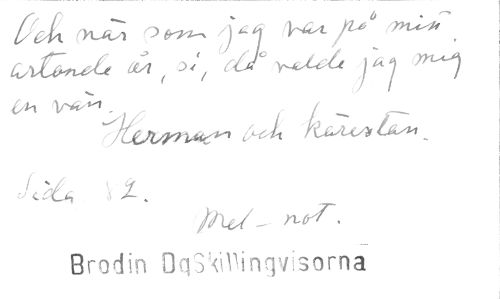 Och när som jag var på mitt
artonde år, si, då valde jag mig
en vän.
Herman och kärestan.
Sida 82.
Mel-not.
Brodin DqSkillingvisorna